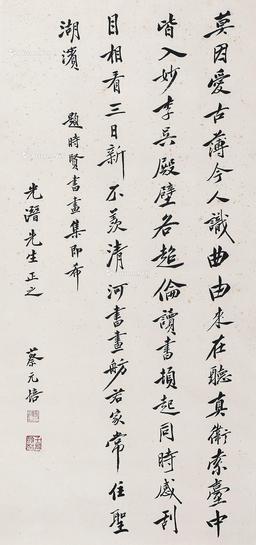 莫因愛古薄今人識曲由來在聽真衛索臺中
皆入妙李吳殿壁各超倫讀書頓起同時感刮
目相看三日新不羨清河書畫舫君家常住聖
湖濱
題時賢書畫集即希
光潛先生正之
蔡元培